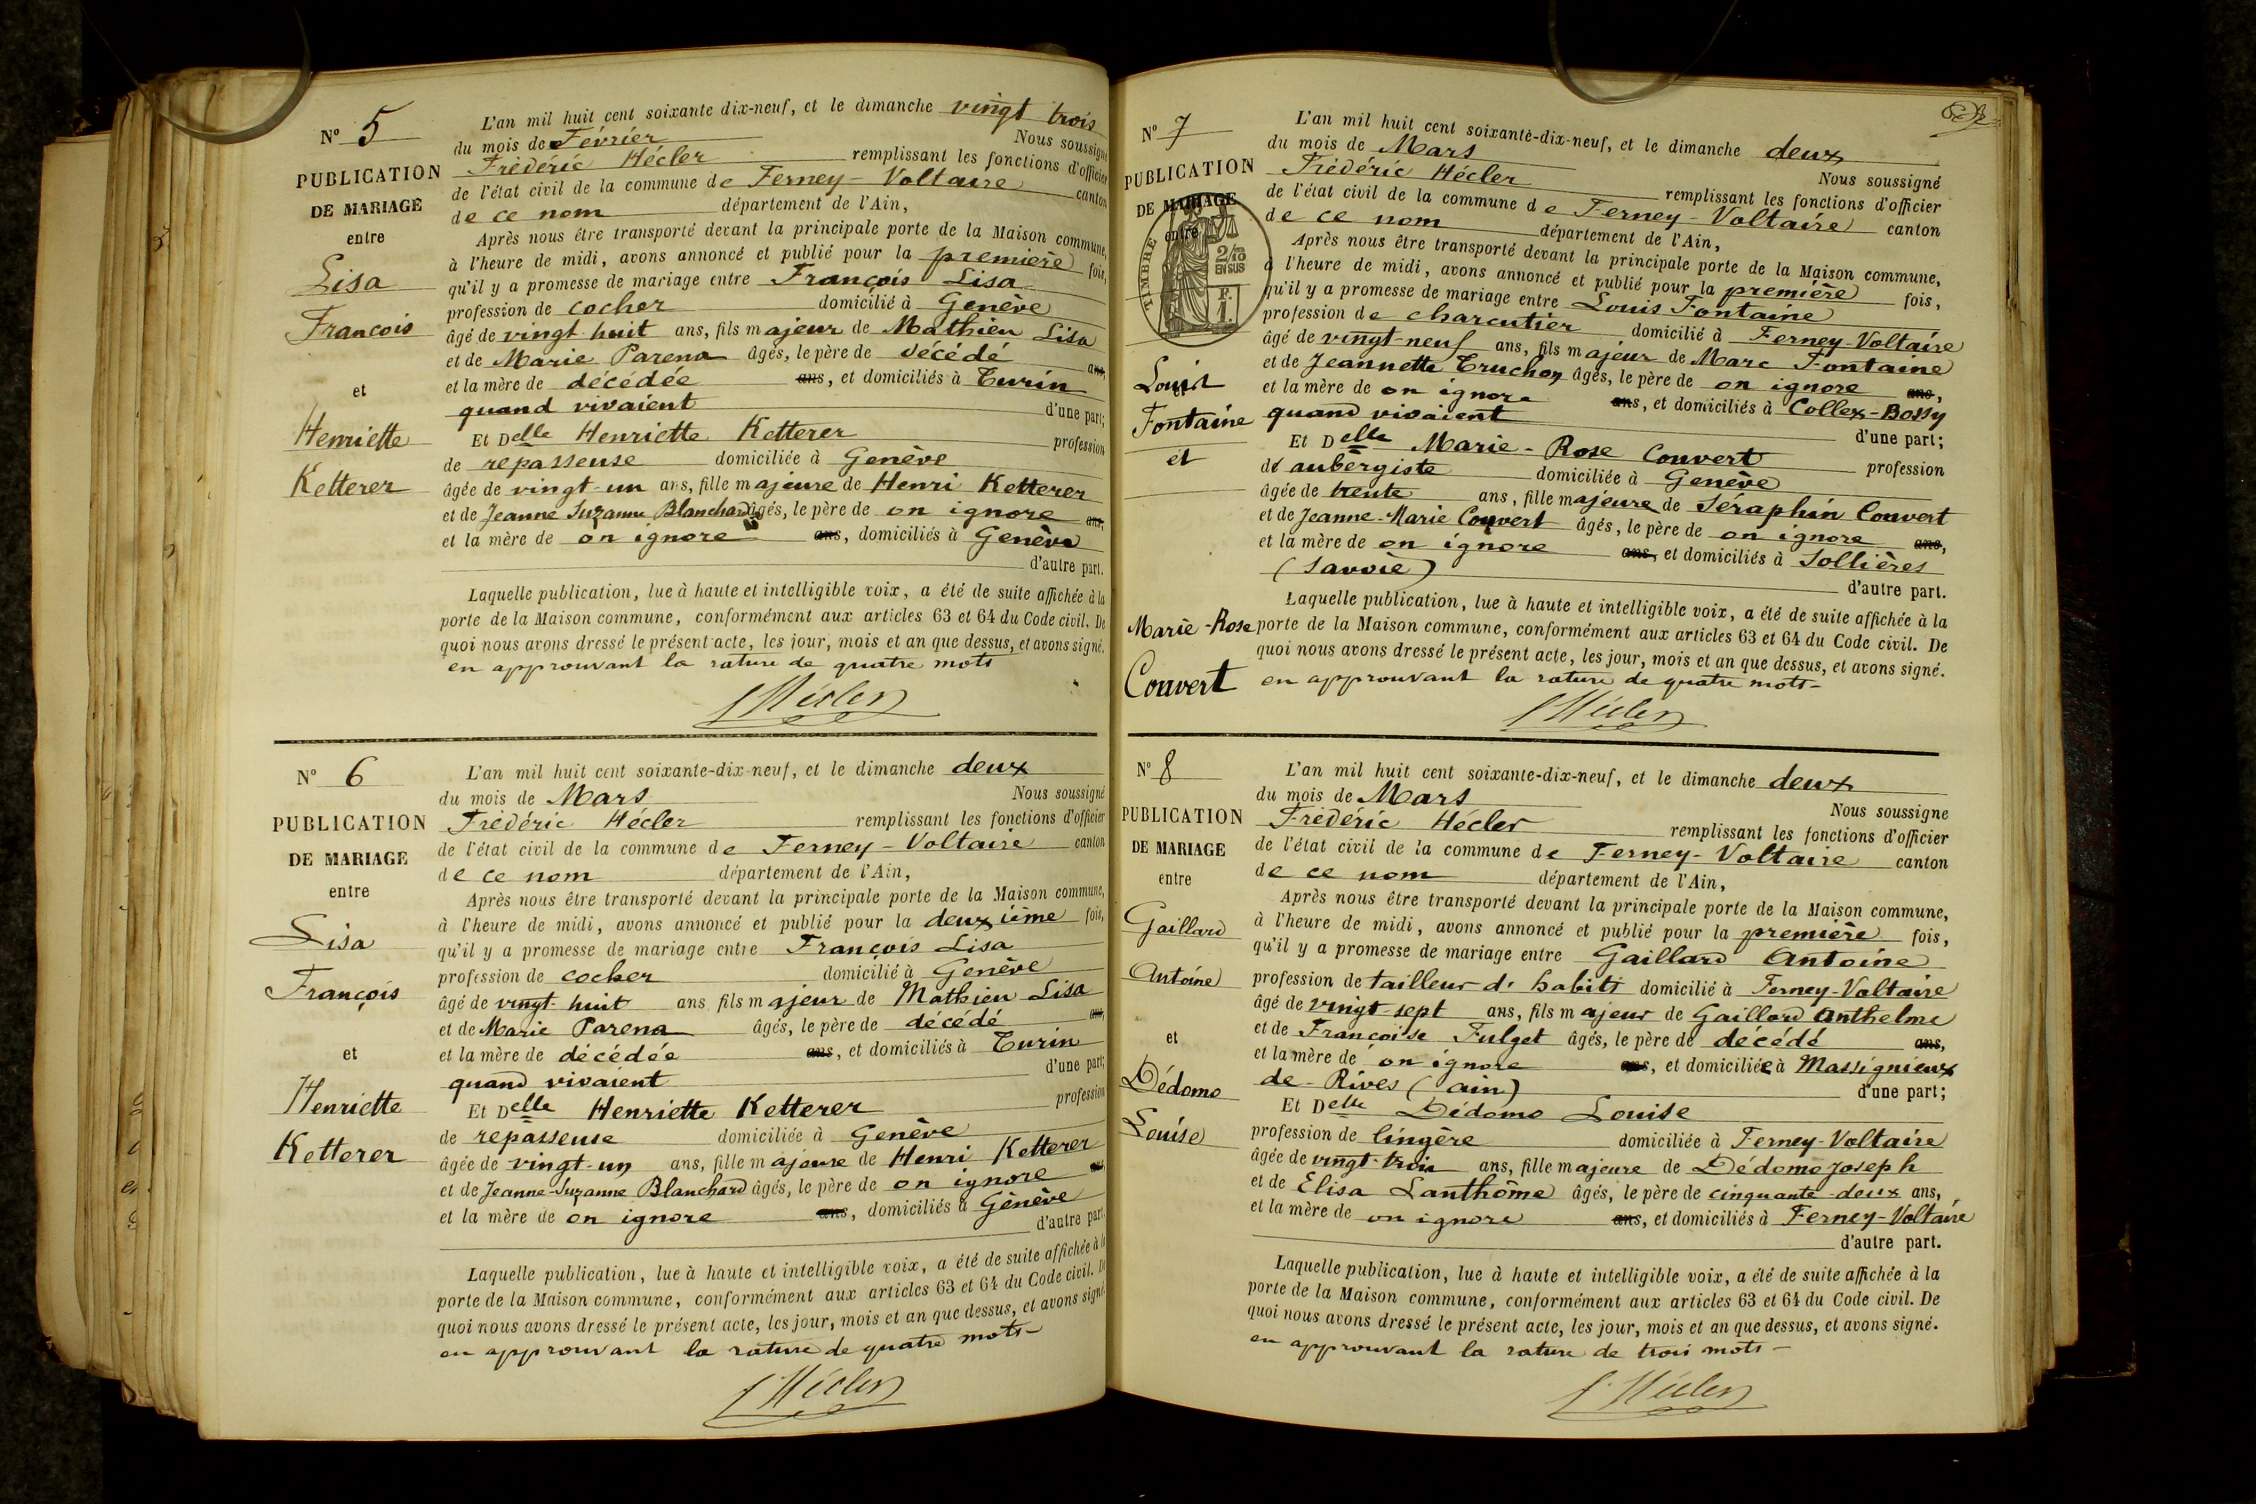 N° 5
PUBLICATION
DE MARIAGE
entre
Lisa
François
et
Henriette
Ketterer
L'an mil huit cent soixante dix-neuf, et le dimanche vingt trois
du mois de Février Nous soussigné
Frédéric Hécler remplissant les fonctions d'officier
de l'état civil de la commune de Ferney-Voltaire canton
de ce nom département de l'Ain,
Après nous être transporté devant la principale porte de la Maison commune,
à l'heure de midi, avons annoncé et publié pour la première fois,
qu'il y a promesse de mariage entre François Lisa
profession de cocher domicilié à Genève
âgé de vingt huit ans, fils majeur de Mathieu Lisa
et de Marie Parena âgés, le père de décédé ans,
et la mère de décédée ans, et domiciliés à Turin
quand vivaient d'une part;
Et Delle Henriette Ketterer profession
de repasseuse domiciliée à Genève
âgée de vingt-un ans, fille majeure de Henri Ketterer
et de Jeanne Suzanne Blanchard âgés, le père de on ignore ans,
et la mère de on ignore ans, domiciliés à Genève
d'autre part.
Laquelle publication, lue à haute et intelligible voix, a été de suite affichée à la
porte de la Maison commune, conformément aux articles 63 et 64 du Code civil. De
quoi nous avons dressé le présent acte, les jour, mois et an que dessus, et avons signé.
en approuvant la rature de quatre mots
f. Hécler
N° 6
PUBLICATION
DE MARIAGE
entre
Lisa
François
et
Henriette
Ketterer
L'an mil huit cent soixante-dix-neuf, et le dimanche deux
du mois de Mars Nous soussigné
Frédéric Hécler remplissant les fonctions d'officier
de l'état civil de la commune de Ferney-Voltaire canton
de ce nom département de l'Ain,
Après nous être transporté devant la principale porte de la Maison commune,
à l'heure de midi, avons annoncé et publié pour la deuxième fois,
qu'il y a promesse de mariage entre François Lisa
profession de cocher domicilié à Genève
âgé de vingt-huit ans fils majeur de Mathieu Lisa
et de Marie Parena âgés, le père de décédé ans,
et la mère de décédée ans, et domiciliés à Turin
quand vivaient d'une part;
Et Delle Henriette Ketterer profession
de repasseuse domiciliée à Genève
âgée de vingt-un ans, fille majeure de Henri Ketterer
et de Jeanne-Suzanne Blanchard âgés, le père de on ignore ans
et la mère de on ignore ans, domiciliés à Genève
d'autre part.
Laquelle publication, lue à haute et intelligible voix, a été de suite affichée à la
porte de la Maison commune, conformément aux articles 63 et 64 du Code civil. De
quoi nous avons dressé le présent acte, les jour, mois et an que dessus, et avons signé.
en approuvant la rature de quatre mots-
f. Hécler
N° 7
PUBLICATION
DE MARIAGE
entre
TIMBRE
2/10
EN SUS
F.
1.
Louis
et
Fontaine
et
Marie-Rose
Couvert
L'an mil huit cent soixante-dix-neuf, et le dimanche deux
du mois de Mars Nous soussigné
Frédéric Hécler remplissant les fonctions d'officier
de l'état civil de la commune de Ferney-Voltaire canton
de ce nom département de l'Ain,
Après nous être transporté devant la principale porte de la Maison commune,
à l'heure de midi, avons annoncé et publié pour la première fois,
qu'il y a promesse de mariage entre Louis Fontaine
profession de charcutier domicilié à Ferney-Voltaire
âgé de vingt-neuf ans, fils majeur de Marc Fontaine
et de Jeannette Truchon âgés, le père de on ignore ans,
et la mère de on ignore ans, et domiciliés à Collex-Bossy
quand vivaient d'une part;
Et Delle Marie-Rose Couvert profession
de aubergiste domiciliée à Genève
âgée de trente ans, fille majeure de Séraphin Couvert
et de Jeanne-Marie Couvert âgés, le père de on ignore ans,
et la mère de on ignore ans, et domiciliés à Sollières
(Savoie) d'autre part.
Laquelle publication, lue à haute et intelligible voix, a été de suite affichée à la
porte de la Maison commune, conformément aux articles 63 et 64 du Code civil. De
quoi nous avons dressé le présent acte, les jour, mois et an que dessus, et avons signé.
en approuvant la rature de quatre mots-
f. Hécler
N° 8
PUBLICATION
DE MARIAGE
entre
Gaillard
Antoine
et
Dédomo
Louise
L'an mil huit cent soixante-dix-neuf, et le dimanche deux
du mois de Mars Nous soussigne
Frédéric Hécler remplissant les fonctions d'officier
de l'état civil de la commune de Ferney-Voltaire canton
de ce nom département de l'Ain,
Après nous être transporté devant la principale porte de la Maison commune,
à l'heure de midi, avons annoncé et publié pour la première fois,
qu'il y a promesse de mariage entre Gaillard Antoine
profession de tailleur d'habits domicilié à Ferney-Voltaire
âgé de vingt-sept ans, fils majeur de Gaillard Anthelme
et de Françoise Fulget âgés, le père de décédé ans,
et la mère de on ignore ans, et domiciliée à Massignieux
de-Rives (Ain) d'une part;
Et Delle Dédomo Louise
profession de lingère domiciliée à Ferney-Voltaire
âgée de vingt-trois ans, fille majeure de Dédomo Joseph
et de Elisa Lanthôme âgés, le père de cinquante-deux ans,
et la mère de on ignore ans, et domiciliés à Ferney-Voltaire
d'autre part.
Laquelle publication, lue à haute et intelligible voix, a été de suite affichée à la
porte de la Maison commune, conformément aux articles 63 et 64 du Code civil. De
quoi nous avons dressé le présent acte, les jour, mois et an que dessus, et avons signé.
en approuvant la rature de trois mots-
f. Hécler